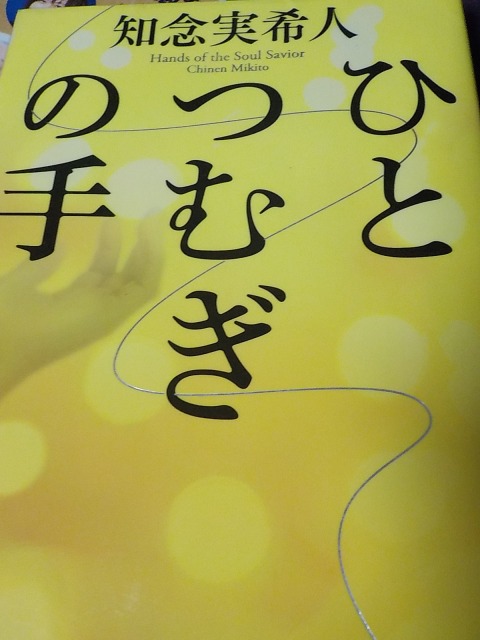 知念実希人
Hands of the Soul Savior
Chinen Mikito
ひと
つむぎ
の手